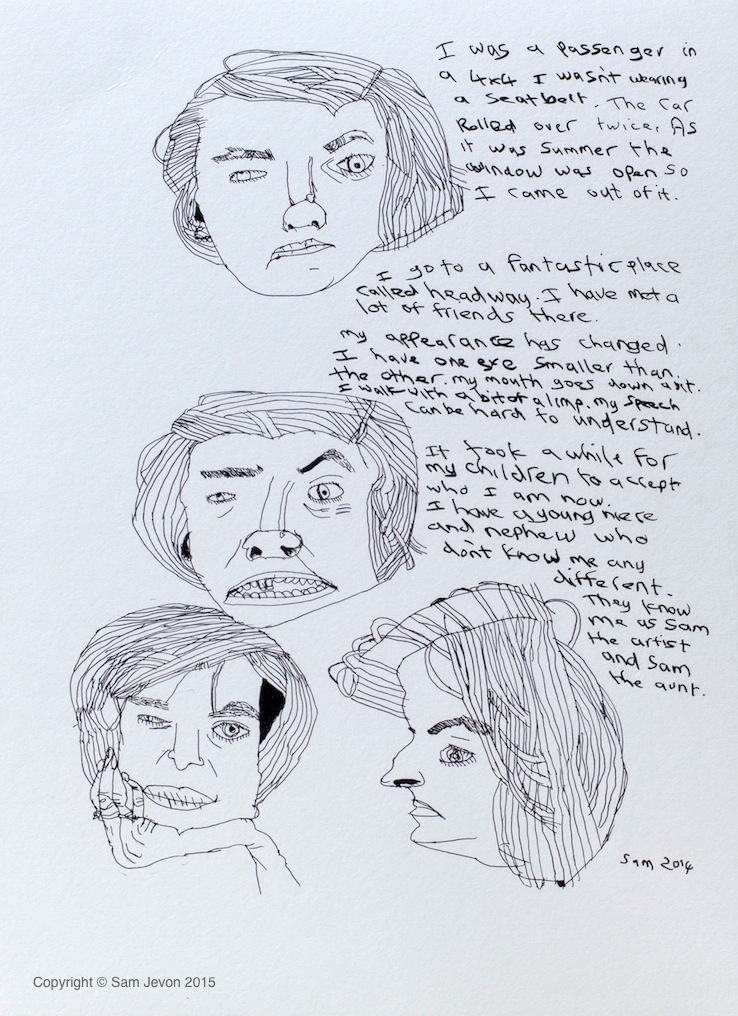 I was a passenger in
a 4x4 I wasn't wearing
a seatbelt. The car
Rolled over twice. As
it was summer the
window was open so
I came out of it.
I go to a fantastic place
called headway. I have met a
lot of friends there.
my appearance has changed.
I have one eye smaller than
the other. my mouth goes down a bit.
I walk with a bit of a limp. my speech
can be hard to understand.
It took a while for
my children to accept
who I am now.
I have a young niece
and nephew who
don't know me any
different.
They know
me as Sam
the artist
and Sam
the aunt.
Sam 2014
Copyright © Sam Jevon 2015